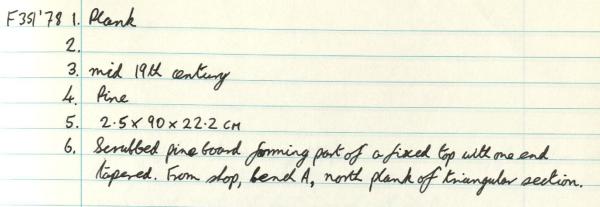 F351'78 1. Plank
2.
3. mid 19th century
4. Pine
5. 2.5 x 90 x 22.2 CM
6. Scrubbed pine board forming part of a fixed top with one end
tapered. From shop, bench A, north plank of triangular section.